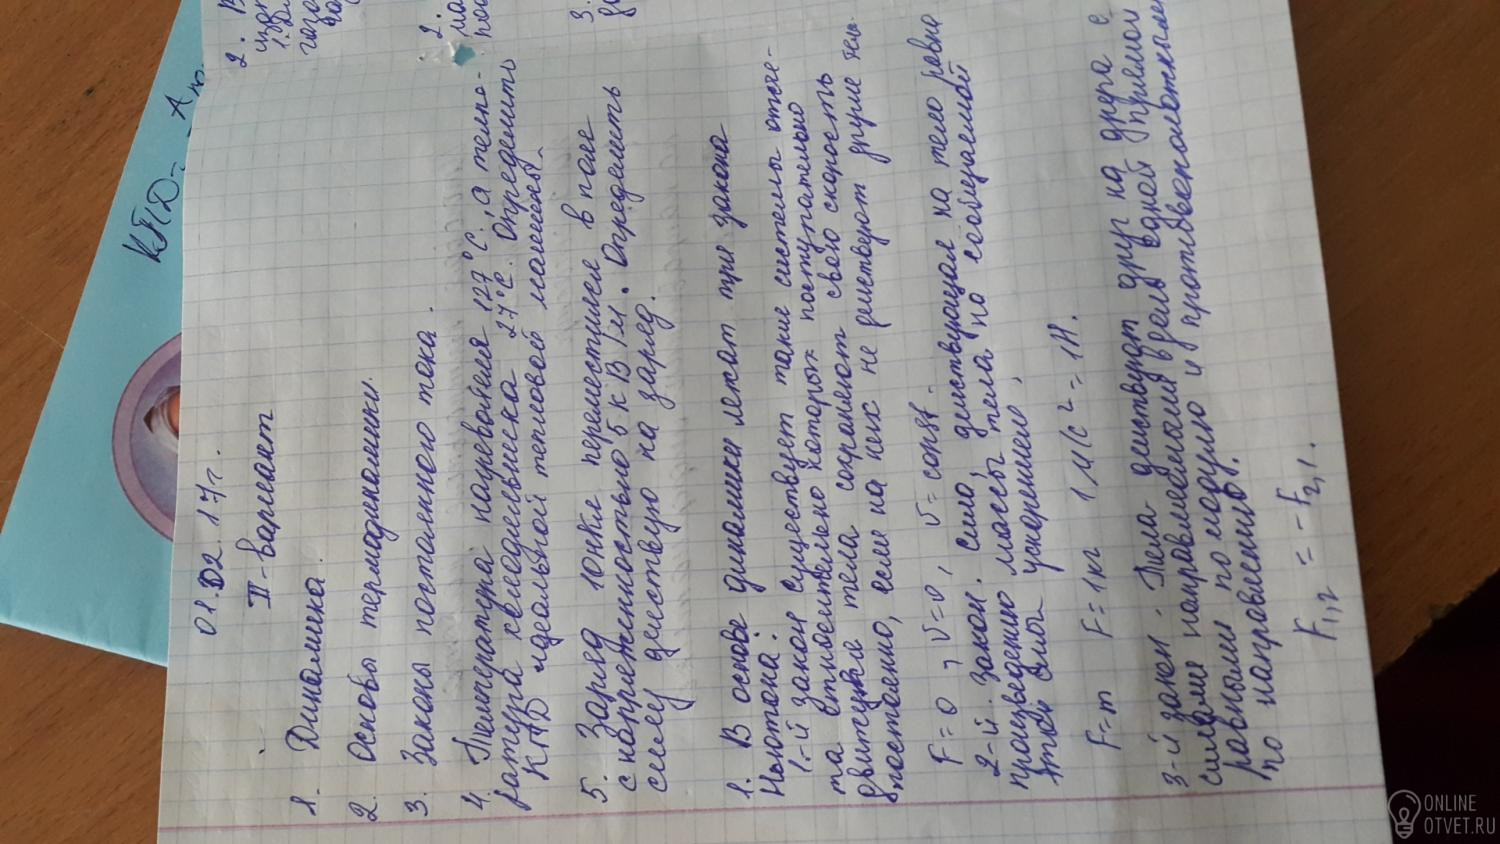 01.02.17г.
II-вариант
1. Динамика.
2. Основы термодинамики.
3. Законы постоянного тока.
4. Температура нагревателя 127°С, а темпе-
ратура холодильника 27°С. Определить
КПД идеальной тепловой машины.
5. Заряд 10нКл переместился в поле
с напряженностью 5 к В/м. Определить
силу действую на заряд.
1. В основе динамики лежат три закона
Ньютона:
1-й закон существует такие системы отсче-
та относительно которых поступательно
движущиеся тела сохраняют свою скорость
постоянно, если на них не действуют другие тела
F=0, v=0, v=const.
2-й закон. сила, действующая на тело равна
произведению массы тела на сообщаемой
этой силы ускорение.
F=m F=1кг 1м/с2=1Н.
3-й закон. Тела действуют друг на друга с
силами направлеными вдоль одной прямой
равными по модулю и противоположными
по направлению.
F1,2 = -F2,1.
КПД
2.
2.
3.
ONLINE
OTVET.RU